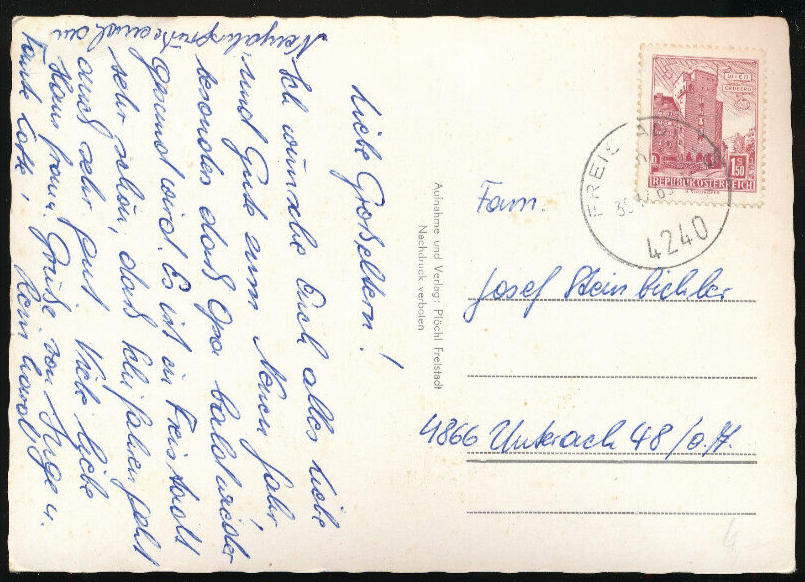 Liebe Großeltern!
Ich wünsche Euch alles Liebe
und Gute zum Neuen Jahr,
besonders daß Opa bald wieder
gesund wird. Es ist in Freistadt
sehr schön, daß Schifahren geht
auch sehr gut. Viele liebe
Grüße von Jürgen.
Tante Lotte,
Aufnahme und Verlag: Plöchl Freistadt
Nachdruck verboten
WIEN
ERDBERG
1.50
S
REPUBLIK ÖSTERREICH
4240
Fam.
Josef Steinbichler
4866 Unterach 48/a.A.